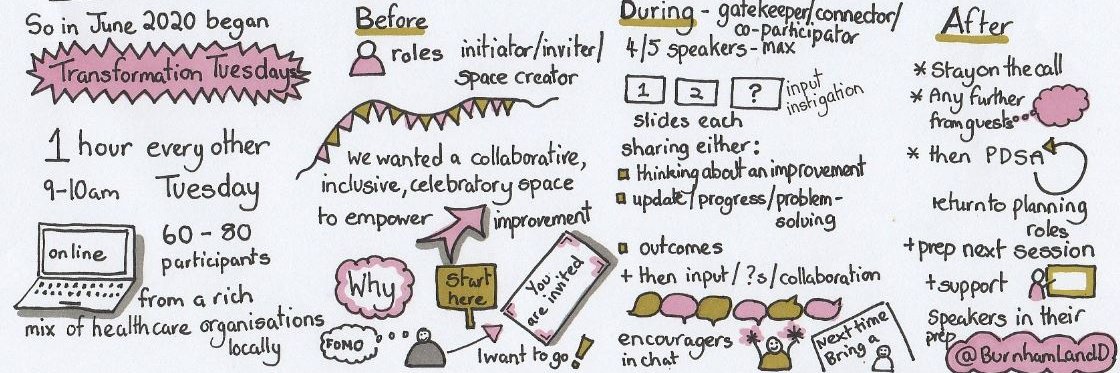 So in June 2020 began
Transformation Tuesdays
1 hour every other
9-10am Tuesday
online
60 - 80
participants
from a rich
mix of healthcare organisations
locally
Before
roles initiator/inviter/
space creator
we wanted a collaborative,
inclusive, celebratory space
to empower improvement
Why
Start
here
You
are invited
FOMO
I want to go!
During - gatekeeper/connector/
co-participator
4/5 speakers - max
1 2 ? input
instigation
slides each
sharing either:
thinking about an improvement
update/progress/problem-
solving
outcomes
+ then input/?s/collaboration
encouragers
in chat
Next time
Bring a
After
* Stay on the call
* Any further
from guests
* then PDSA
return to planning
roles
+ prep next session
+ support
speakers in their
prep
@BurnhamLandD